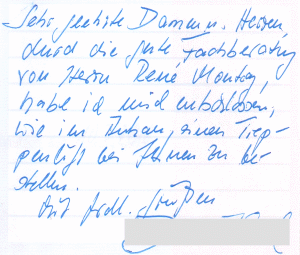 Sehr geehrte Damen u. Herren,
durch die gute Fachberatung
von Herrn René Montag,
habe ich mich entschlossen,
wie im Anhan, einen Trep-
penlift bei Ihnen zu be-
stellen.
Mit frdl. Grüßen